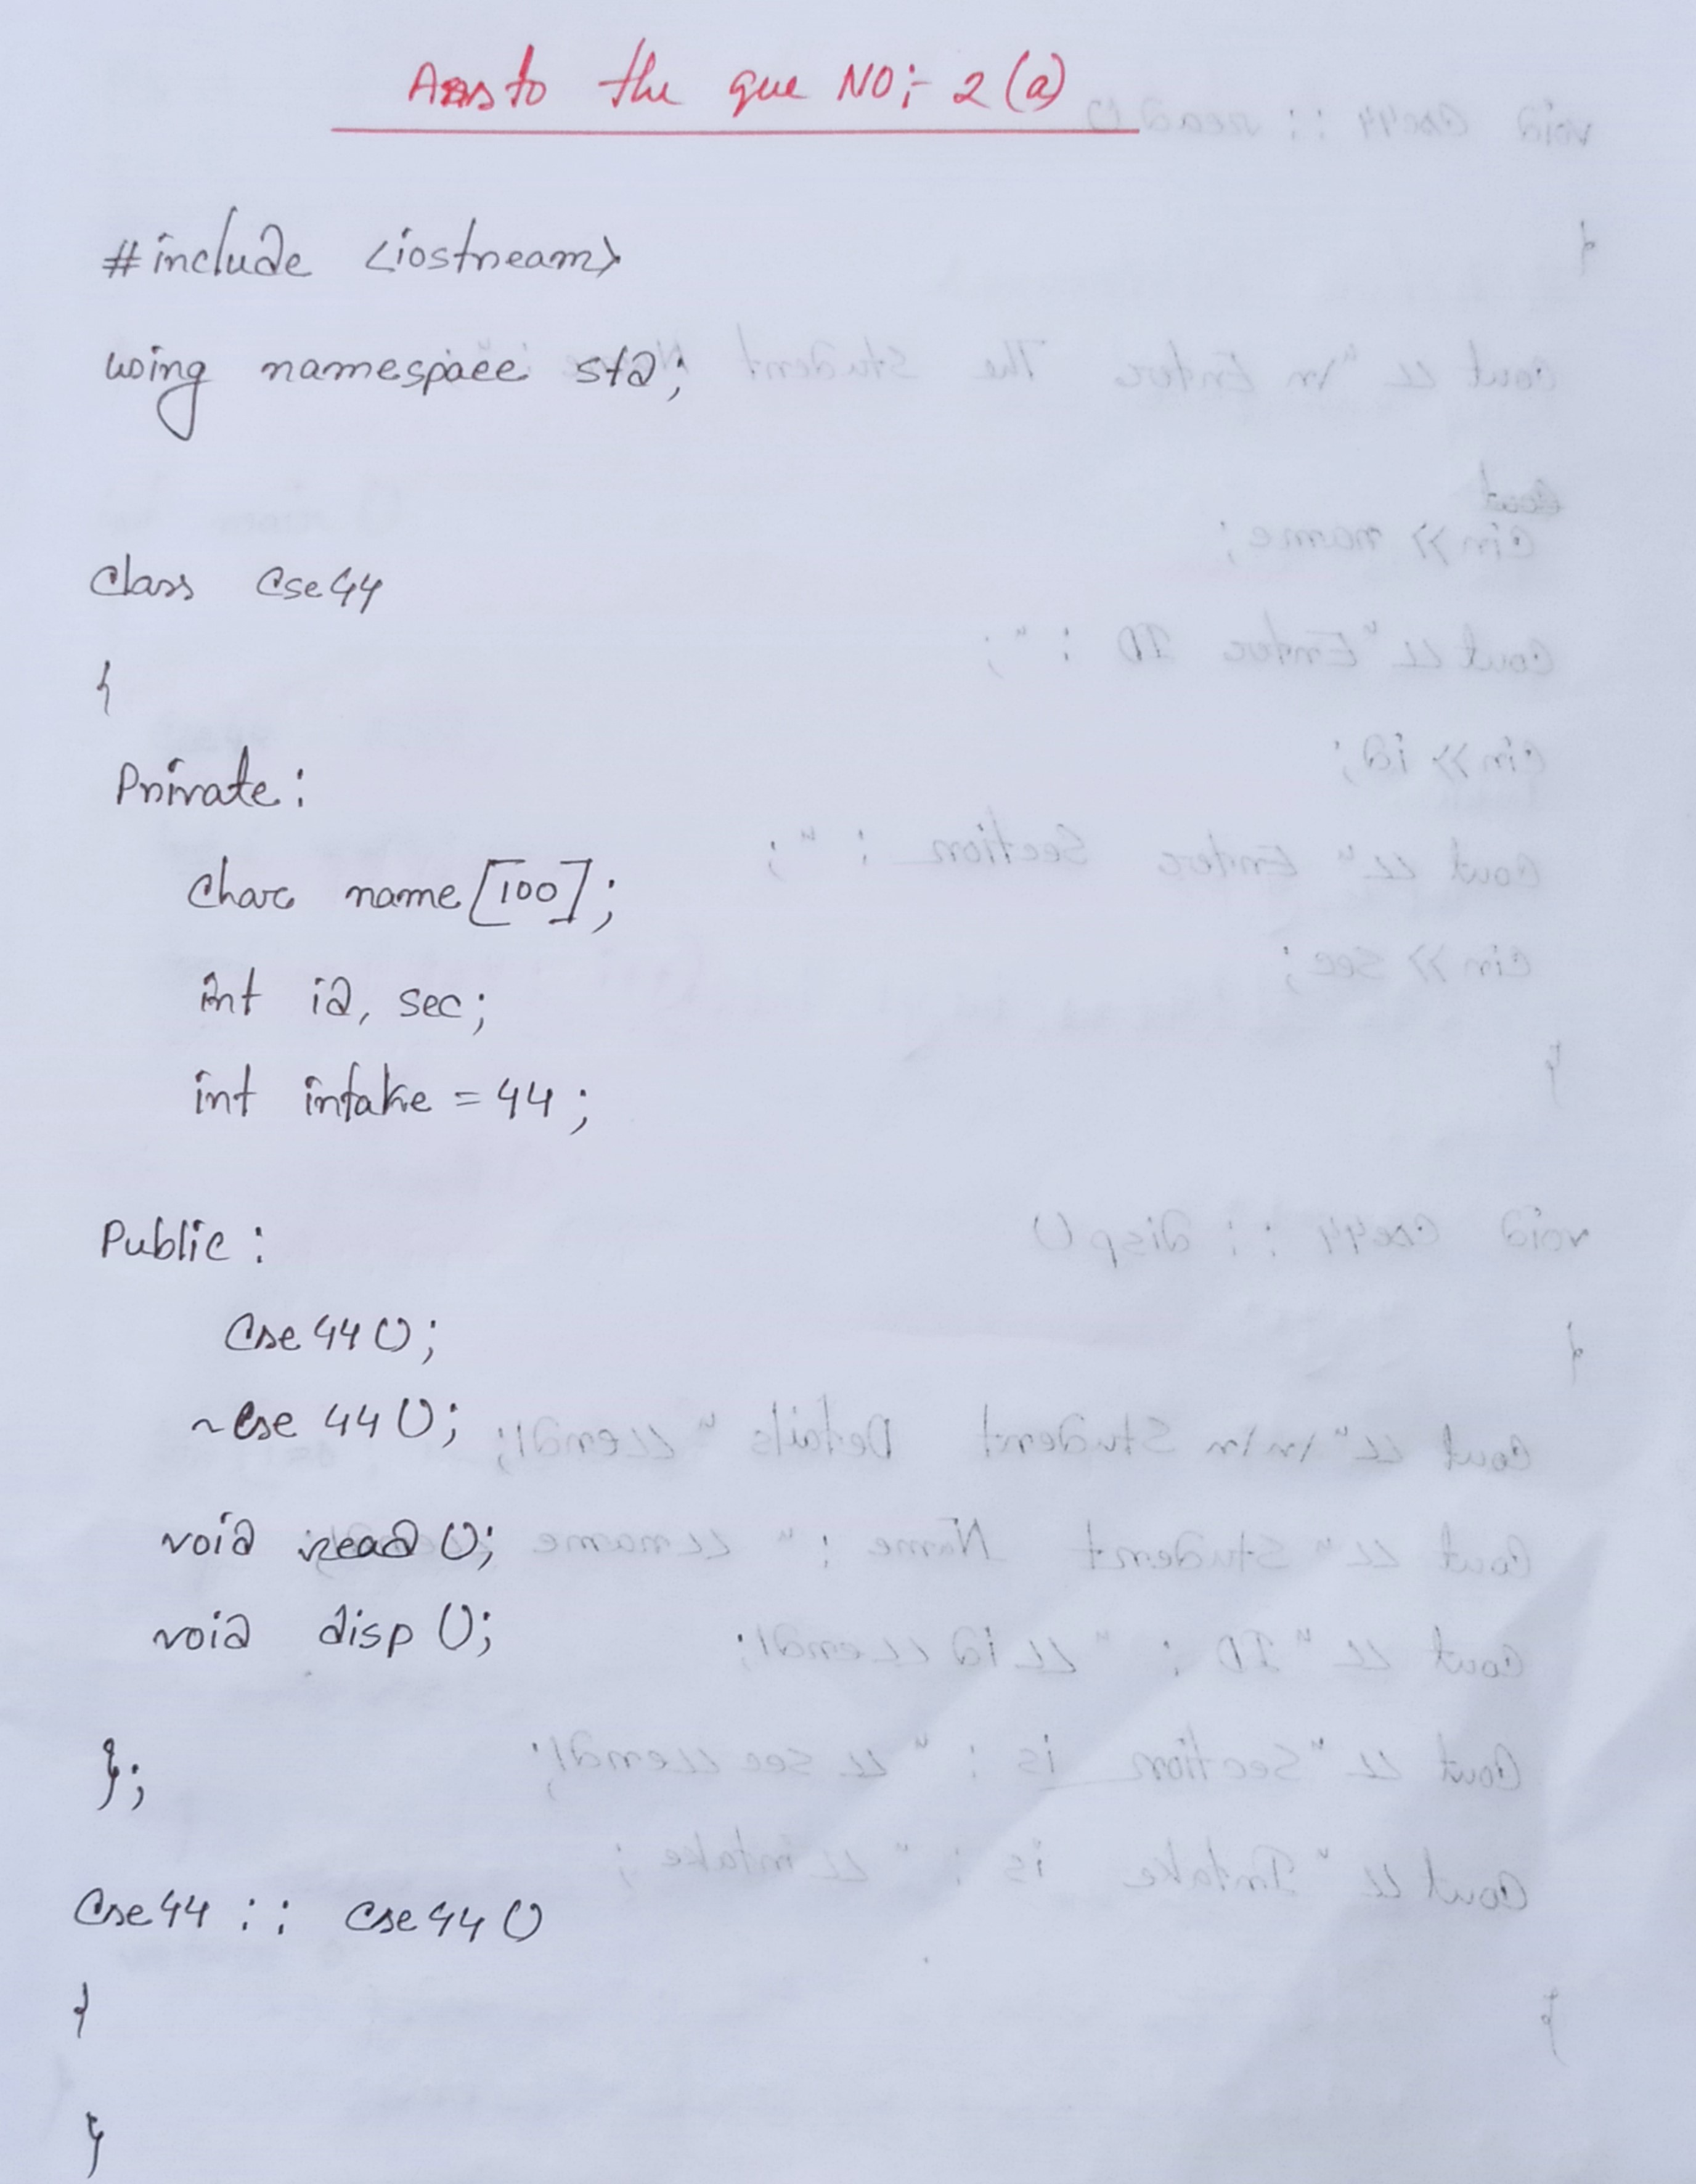 Ans to the que NO:- 2(a)
#include <iostream>
using namespace std;
Class Cse44
{
Private:
char name[100];
int id, sec;
int intake = 44;
Public:
Cse44();
~Cse44();
void read();
void disp();
};
Cse44 :: Cse44()
{
}